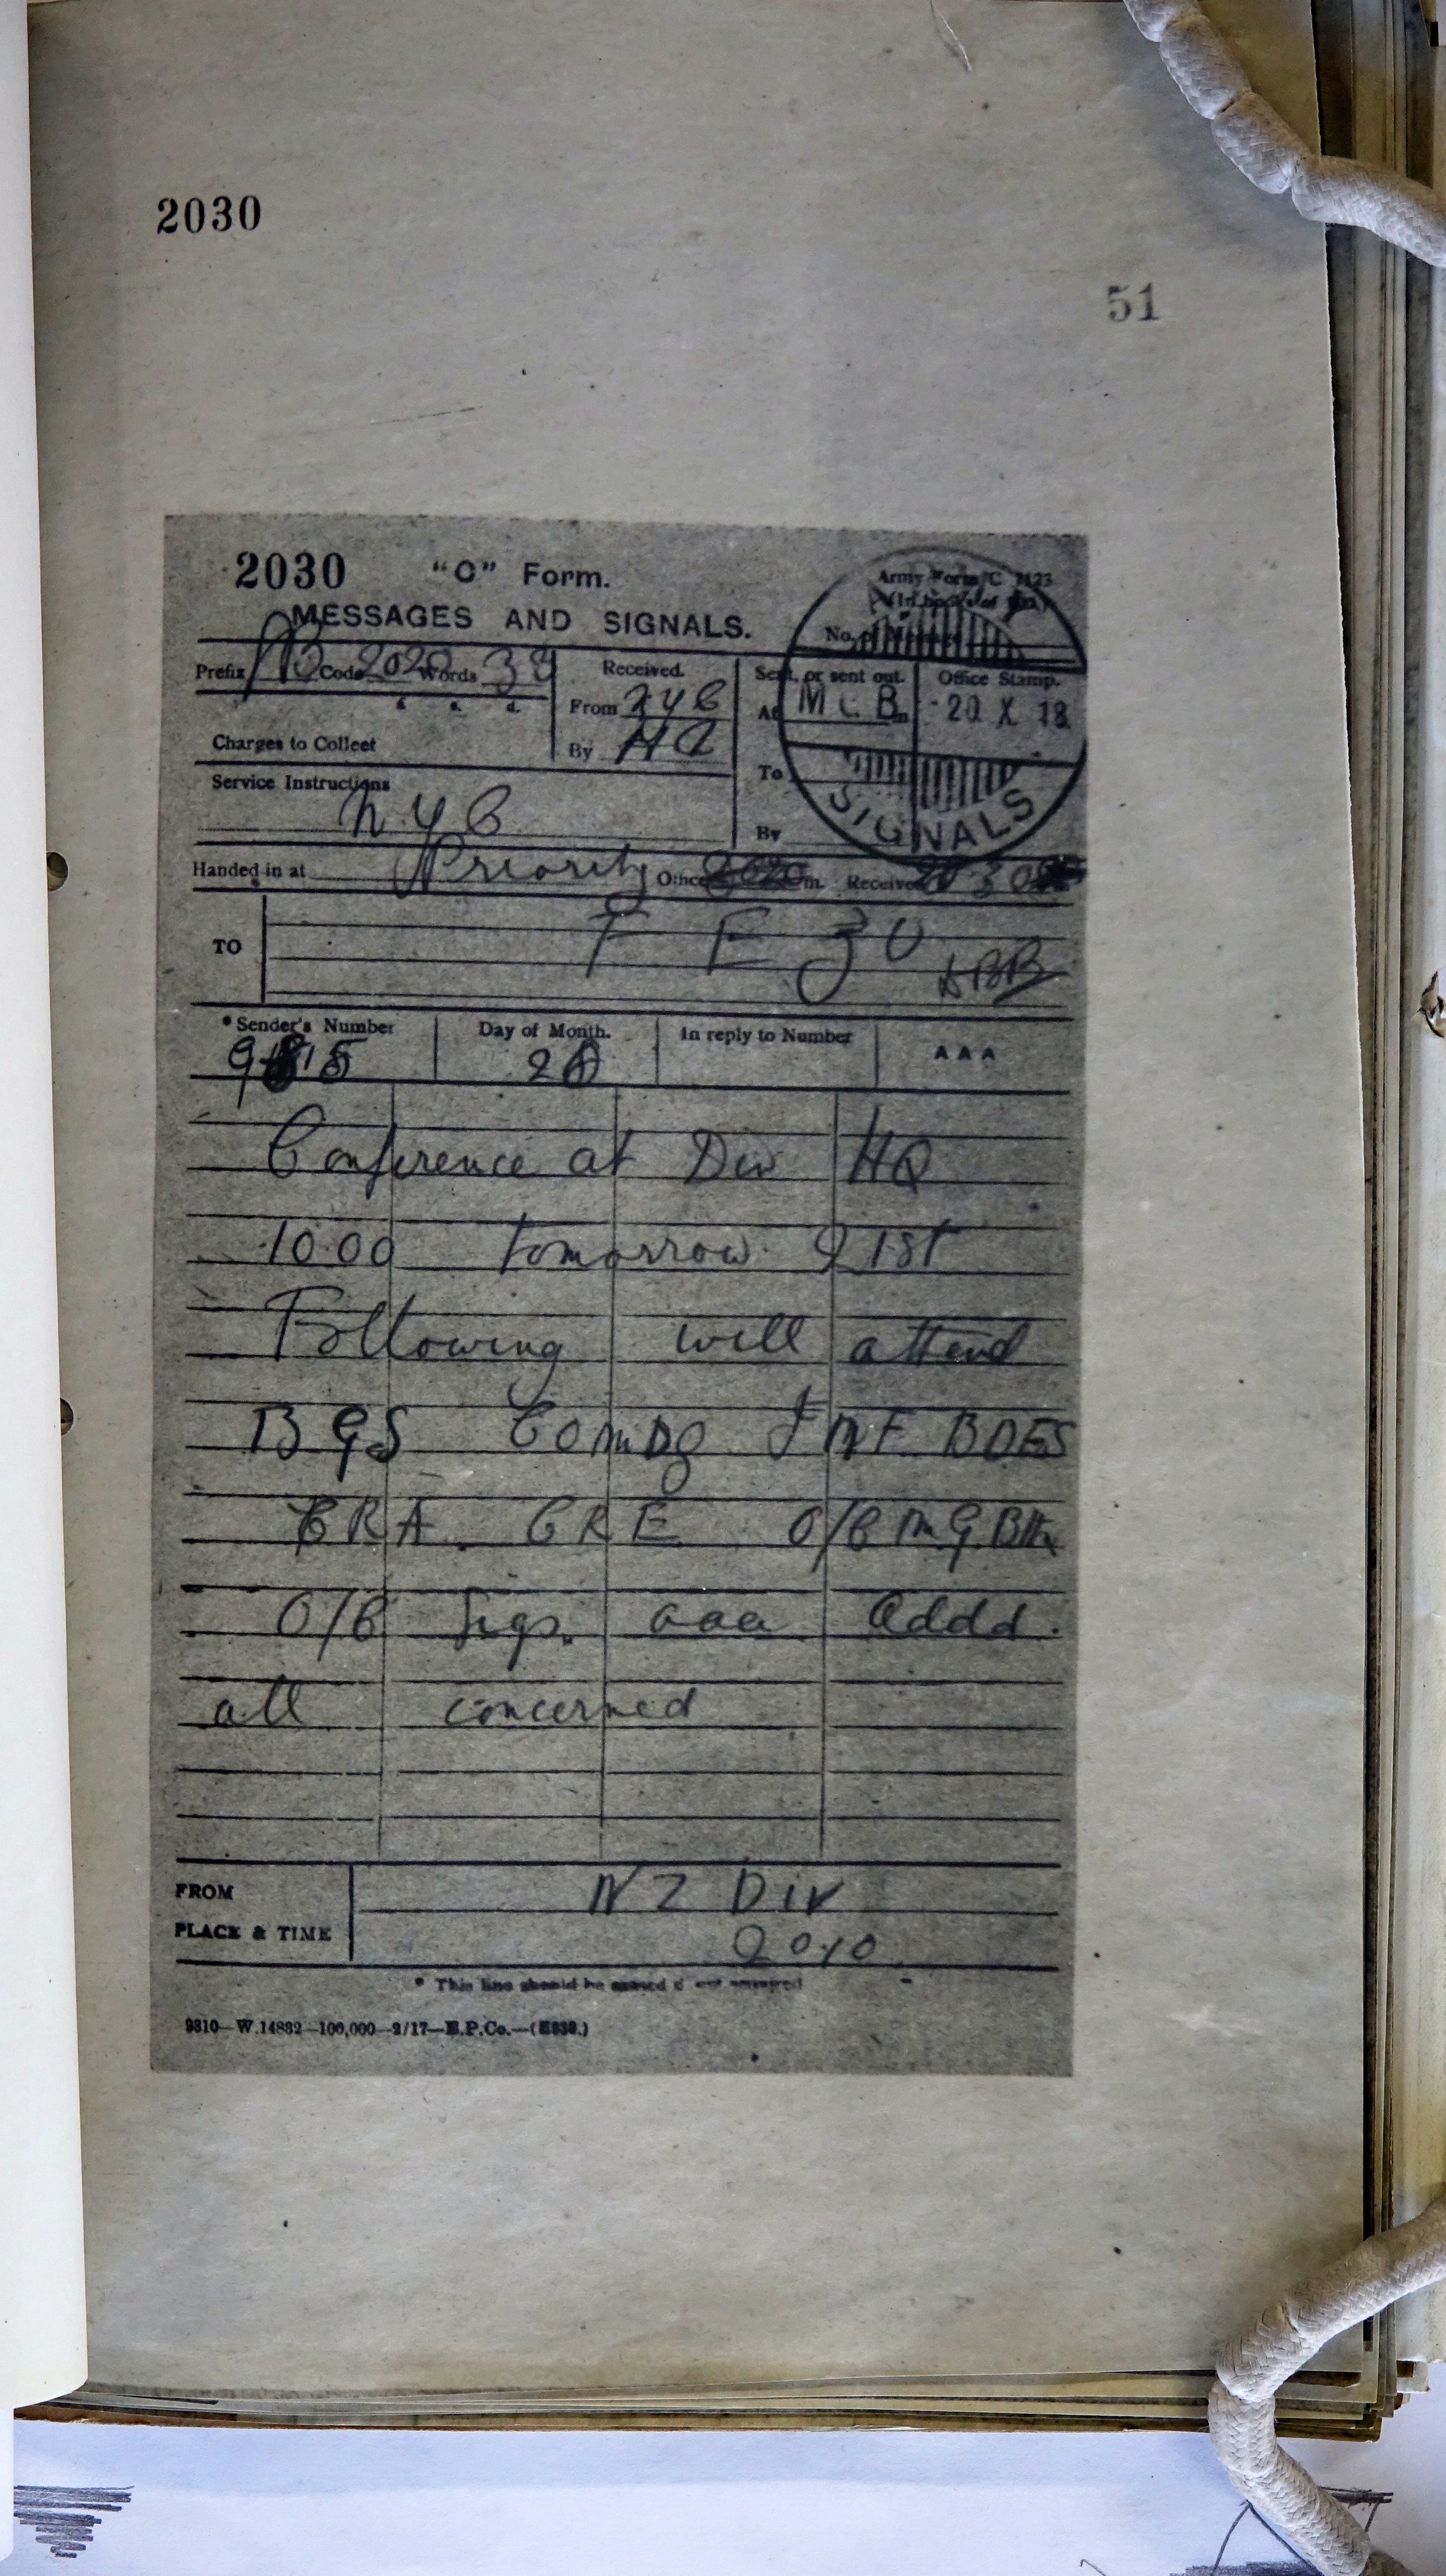 2030
51
2030 "C" Form.
Army Form C 2123
MESSAGES AND SIGNALS.
No. of Message
Prefix Code 2020 Words 38
Received.
Sent, or sent out.
Office Stamp.
£ s. d.
From ZYB
At M C B m
20 X 18
Charges to Collect
By HQ
To
Service Instructions
ZYB
By
SIGNALS
Handed in at Priority Office 2020 m. Received 2030
TO
F E 30
Sender's Number
Day of Month.
In reply to Number
AAA
20
Conference at Div HQ
10.00 tomorrow 21st
Following will attend
BGS Comdg INF BDES
CRA. CRE O/C M G Btn
O/C Sigs. aaa Addd.
all concerned
FROM
N Z Div
PLACE & TIME
2010
* This line should be erased if not required
9310—W.14832—100,000—2/17—E.P.Co.—(E839.)